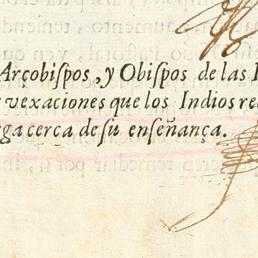 Arçobispos, y Obispos de las
vexaciones que los Indios re
ega cerca de su enseñança.